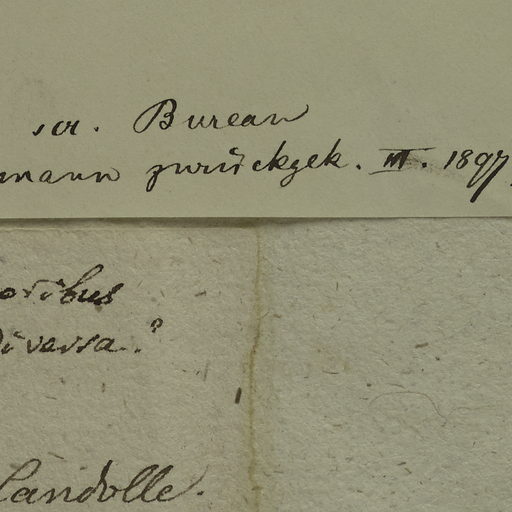 scr. Bureau
mann zurückgek. VII. 1897.
oribus
diversa."
Candolle.